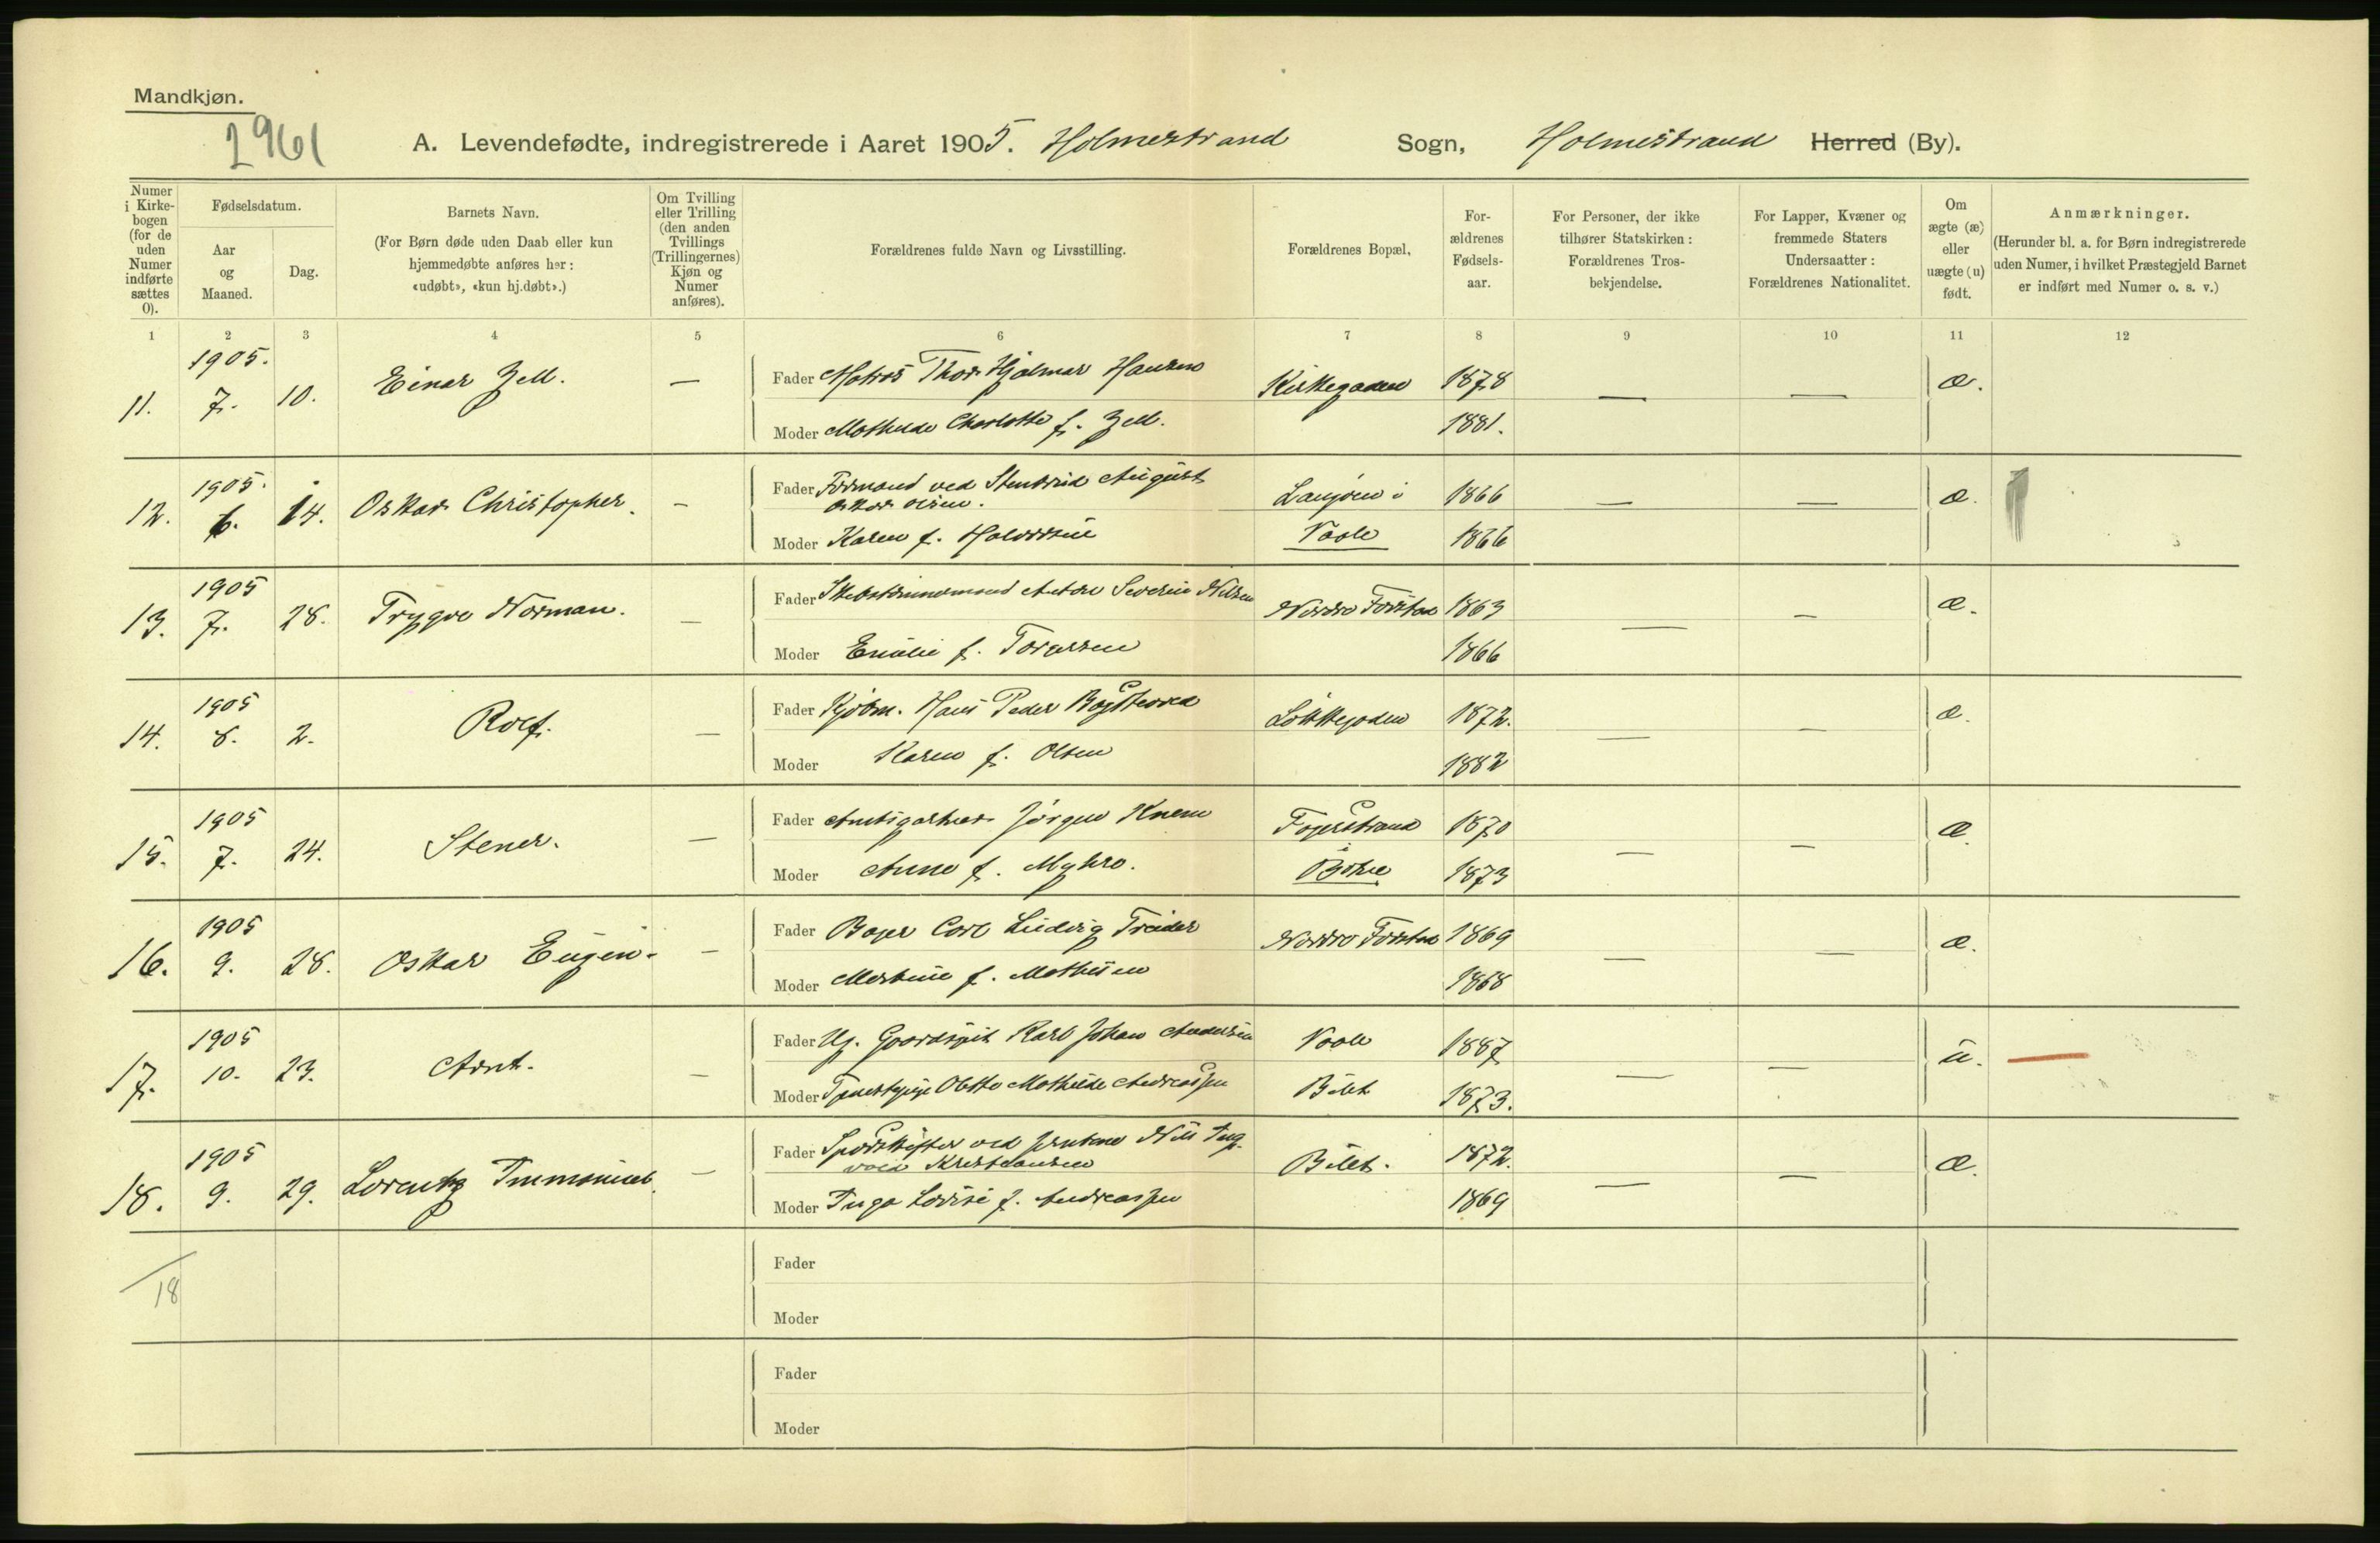 Mandkjøn.
2961
A. Levendefødte, indregistrerede i Aaret 1905. Holmestrand Sogn, Holmestrand Herred (By).
Numer i Kirkebogen (for de uden Numer indførte sættes 0).
Fødselsdatum.
Aar og Maaned.
Dag.
Barnets Navn.
(For Børn døde uden Daab eller kun hjemmedøbte anføres her: «udøbt», «kun hj.døbt».)
Om Tvilling eller Trilling (den anden Tvillings (Trillingernes) Kjøn og Numer anføres).
Forældrenes fulde Navn og Livsstilling.
Forældrenes Bopæl.
Forældrenes Fødselsaar.
For Personer, der ikke tilhører Statskirken: Forældrenes Trosbekjendelse.
For Lapper, Kvæner og fremmede Staters Undersaatter: Forældrenes Nationalitet.
Om ægte (æ) eller uægte (u) født.
Anmærkninger.
(Herunder bl. a. for Børn indregistrerede uden Numer, i hvilket Præstegjeld Barnet er indført med Numer o. s. v.)
1 2 3 4 5 6 7 8 9 10 11 12
11. 1905. 7. 10. Einar Zell. — Fader Matros Thor Hjalmar Hansen Kirkegaden 1878 — — æ.
Moder Mathilde Charlotte f. Zell. 1881.
12. 1905. 6. 14. Oskar Christopher. — Fader Formand ved Stenbrud August
Oskar Olsen. Langøen i 1866 — — æ.
Moder Karen f. Halvorsen Vaale 1866
13. 1905 7. 28. Trygve Norman. — Fader Skibstømmermand Anton Severin Nilsen Nordre Forstad 1863 — — æ.
Moder Emilie f. Torgersen 1866
14. 1905 8. 2. Rolf. — Fader Kjøbm. Hans Peder Løkkegaden 1872. — — æ.
Moder Karen f. Olsen 1882
15. 1905 7. 24. Stener. — Fader Amtsgartner Jørgen Knem Fagerstrand 1870 — — æ.
Moder Anne f. Myhre. i Botne 1873
16. 1905 9. 28. Oskar Eugen. — Fader Bager Carl Ludvig Treider Nordre Forstad 1869 — — æ.
Moder Martine f. Mathisen 1868
17. 1905 10. 23. Arnt. — Fader Ug. Gaardsgut Karl Johan Andersen Vaale 1887 — — u.
Moder Tjenestepige Mathilde Andreassen Bilet 1873.
18. 1905 9. 29. Lorentz Immanuel. — Fader Sporskifter ved Jernbane Nils Ing-
vald Kristiansen Bilet. 1872. — — æ.
Moder Inga Lovise f. Andreassen 1869
18
Fader
Moder
Fader
Moder